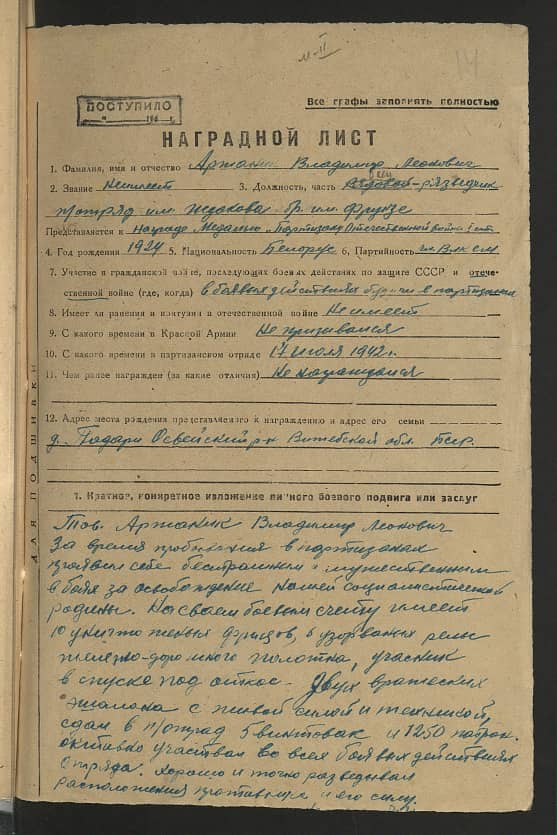 м-II
14
ПОСТУПИЛО
194 г.
Все графы заполнять полностью
НАГРАДНОЙ ЛИСТ
1. Фамилия, имя и отчество Аржаник Владимир Леонович
2. Звание Не имеет 3. Должность, часть Рядовой-разведчик
п/отряд им. Жданова бр. им. Фрунзе
Представляется к награде Медалью „Партизану Отечественной войны" I ст.
4. Год рождения 1924 5. Национальность Белорус 6. Партийность чл. ВЛКСМ
7. Участие в гражданской войне, последующих боевых действиях по защите СССР и отече-
ственной войне (где, когда) в боевых действиях будучи в партизанах
8. Имеет ли ранения и контузии в отечественной войне Не имеет
9. С какого времени в Красной Армии Не призывался
10. С какого времени в партизанском отряде 17 июля 1942 г.
11. Чем ранее награжден (за какие отличия) Не награждался
12. Адрес места рождения представляемого к награждению и адрес его семьи
д. Освейский р-н Витебской обл. БССР.
ДЛЯ ПОДШИВКИ
1. Краткое, конкретное изложение личного боевого подвига или заслуг
Тов. Аржаник Владимир Леонович
За время пребывания в партизанах
проявил себя бесстрашным и мужественным
в боях за освобождение нашей социалистической
родины. На своем боевом счету имеет
10 уничтоженых фрицов, взорваных рельс
железно-дорожного полотна, учасник
в спуске под откос двух вражеских
эшалона с живой силой и техникой,
сдал в п/отряд 5 винтовок и 1250 патрон.
активно участвовал во всех боевых действиях
отряда. Хорошо и точно разведывал
расположения противника и его силу.